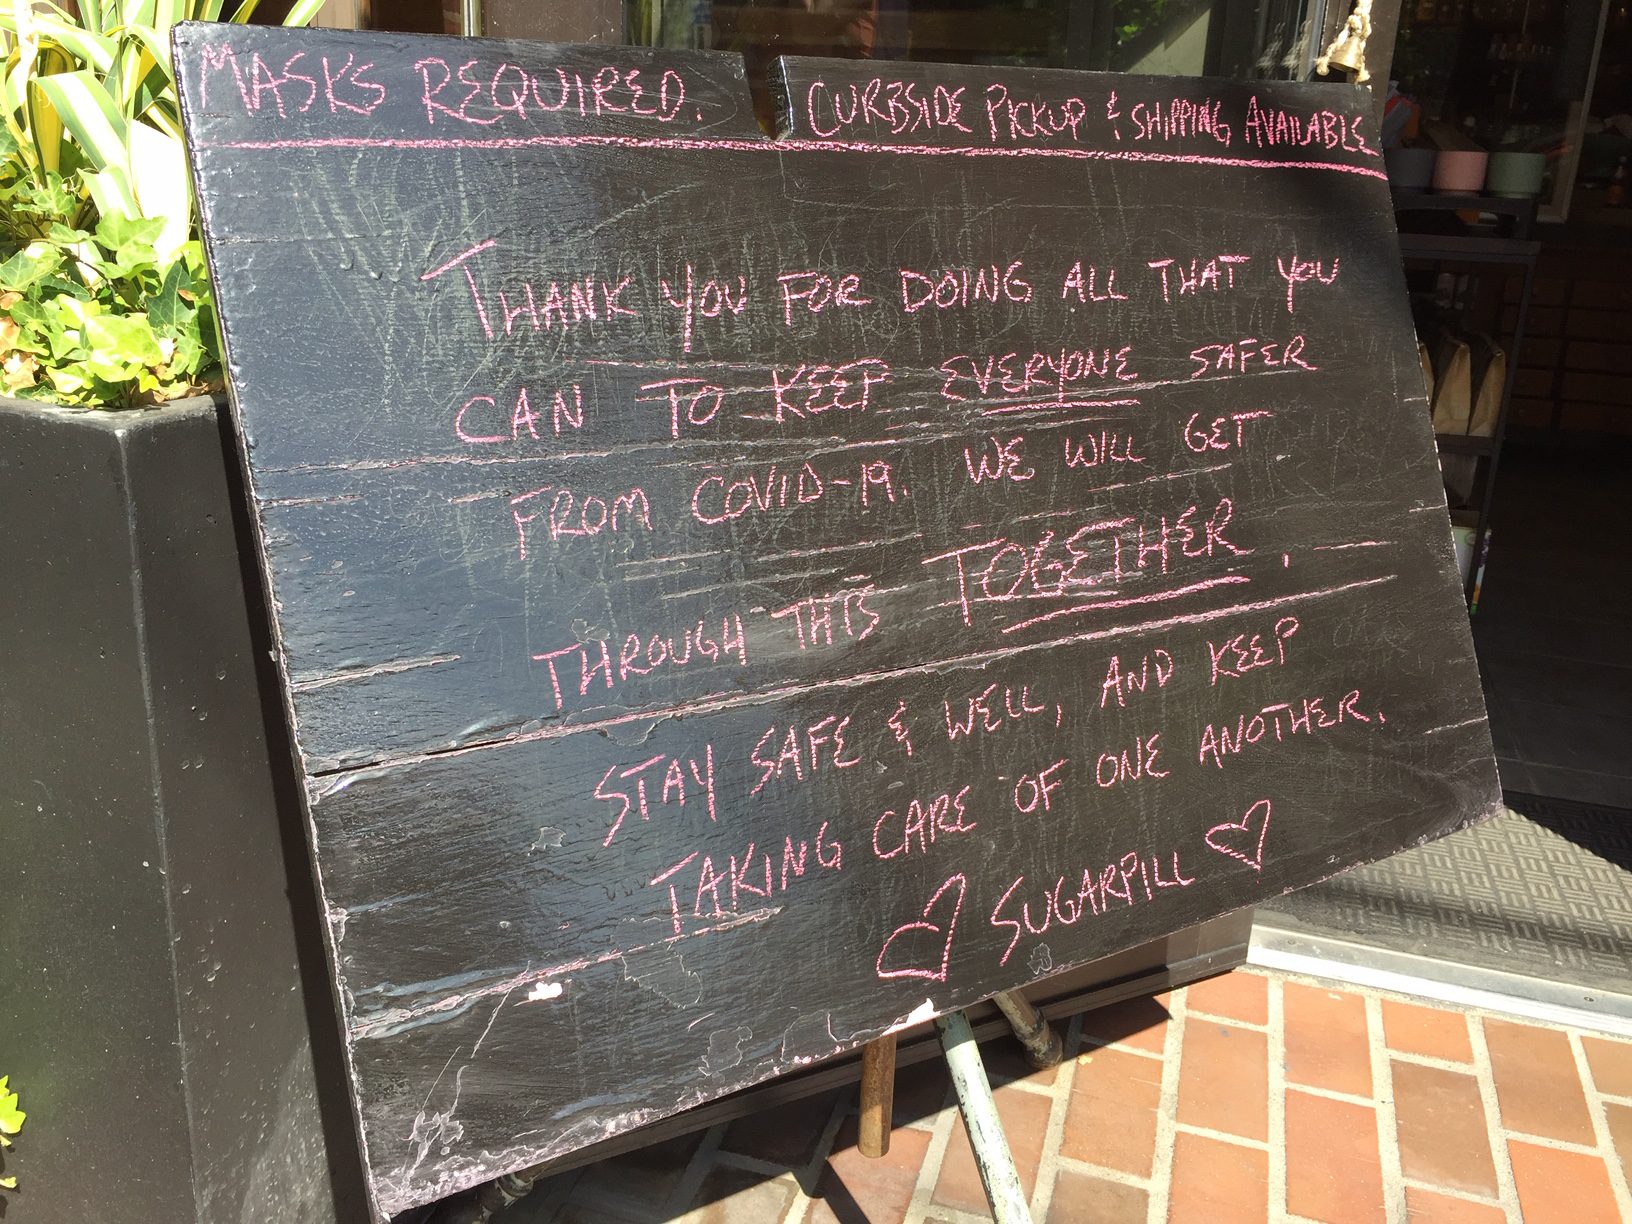 MASKS REQUIRED. CURBSIDE PICKUP & SHIPPING AVAILABLE
THANK YOU FOR DOING ALL THAT YOU
CAN TO KEEP EVERYONE SAFER
FROM COVID-19. WE WILL GET
THROUGH THIS TOGETHER.
STAY SAFE & WELL, AND KEEP
TAKING CARE OF ONE ANOTHER.
♡ SUGARPILL ♡